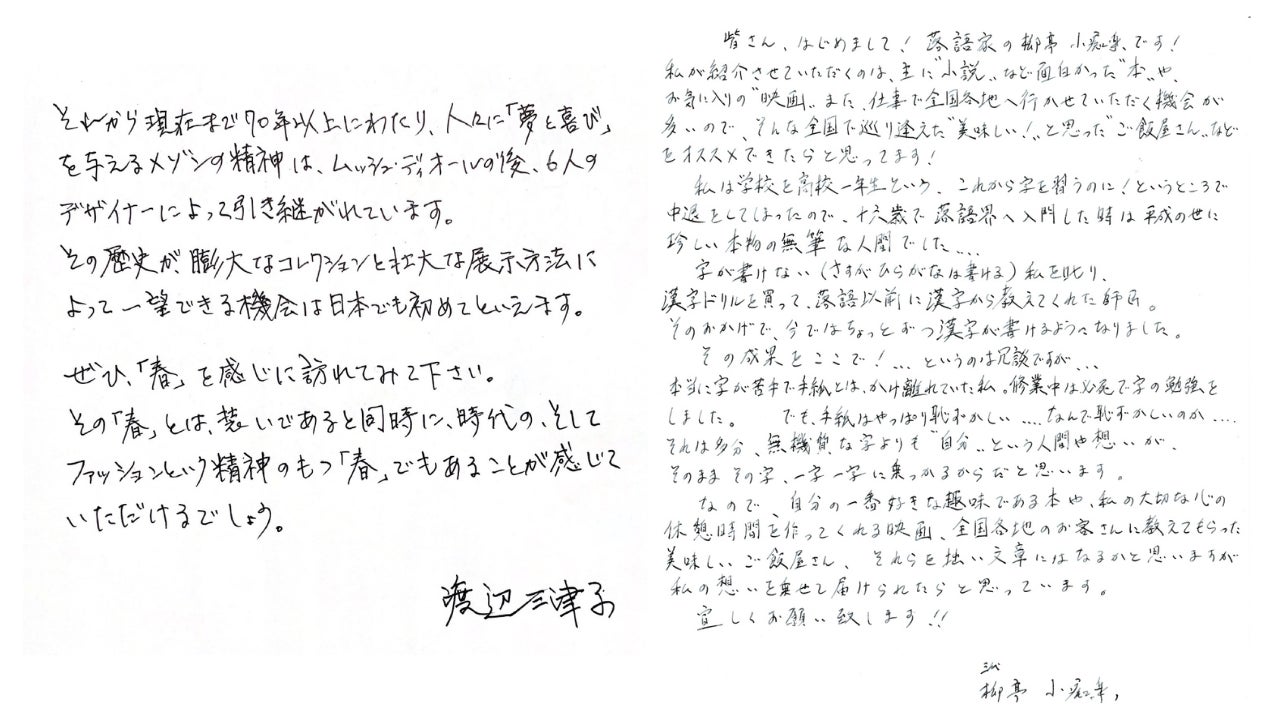 それから現在まで70年以上にわたり、人々に「夢と喜び」
を与えるメゾンの精神は、ムッシュ・ディオールの後、6人の
デザイナーによって引き継がれています。
その歴史が膨大なコレクションと壮大な展示方法に
よって一望できる機会は日本でも初めてといえます。
ぜひ、「春」を感じに訪れてみて下さい。
その「春」とは、装いであると同時に、時代の、そして
ファッションという精神のもつ「春」でもあることが感じて
いただけるでしょう。
渡辺三津子
皆さん、はじめまして！落語家の柳亭小痴楽です！
私が紹介させていただくのは、主に"小説"など面白かった"本"や、
お気に入りの"映画"また、仕事で全国各地へ行かせていただく機会が
多いので、そんな全国で巡り逢えた"美味しい！"と思った"ご飯屋さん"など
をオススメできたらと思ってます！
私は学校を高校一年生という、これから字を習うのに！というところで
中退をしてしまったので、十六歳で落語界へ入門した時は平成の世に
珍しい本物の無筆な人間でした....
字が書けない（さすがひらがなは書ける）私を叱り、
漢字ドリルを買って、落語以前に漢字から教えてくれた師匠。
そのおかげで、今ではちょっとずつ漢字が書けるようになりました。
その成果をここで！...というのは冗談ですが...
本当に字が苦手で手紙とは、かけ離れていた私。修業中は必死で字の勉強を
しました。 でも、手紙はやっぱり恥ずかしい....なんで恥ずかしいのか....
それは多分、無機質な字よりも"自分"という人間や想いが、
そのままその字、一字一字に乗っかるからだと思います。
なので、自分の一番好きな趣味である本や、私の大切な心の
休憩時間を作ってくれる映画、全国各地のお客さんに教えてもらった
美味しいご飯屋さん、それらを拙い文章にはなるかと思いますが
私の想いを乗せて届けられたらと思っています。
宜しくお願い致します！！
三代
柳亭 小痴楽